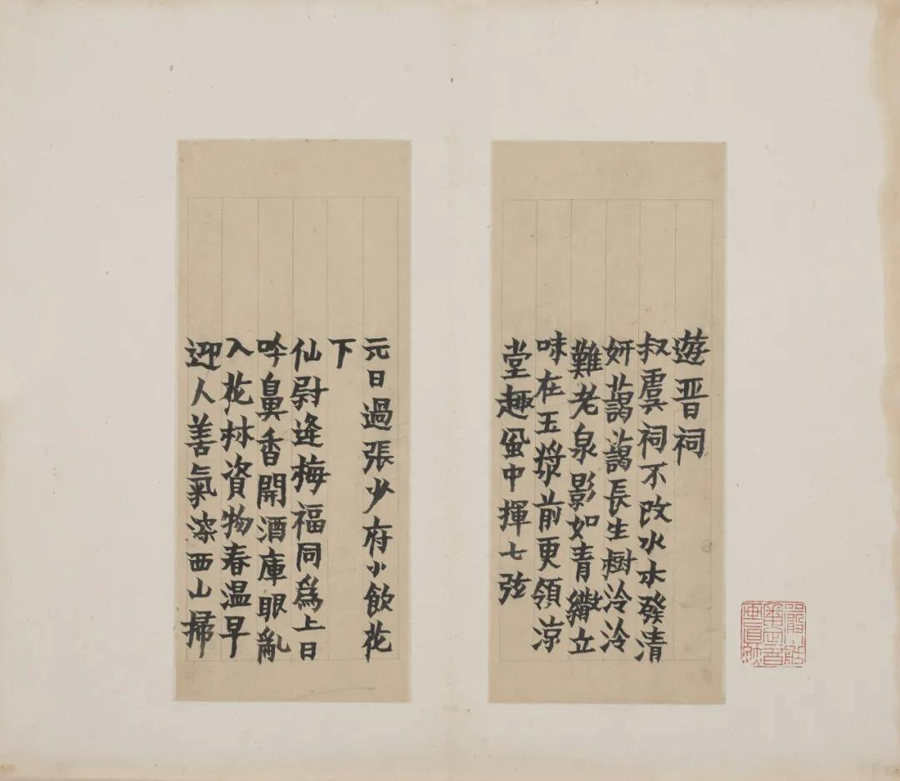 遊晋祠
叔虞祠不改水木發清
妍藹藹長生樹泠泠
難老泉影如青繖立
味在玉漿前更領涼
堂趣風中揮七弦
元日過張少府小飲花
下
仙尉逢梅福同爲上日
吟鼻香開酒庫眼亂
入花林資物春温早
迎人善氣深西山掃